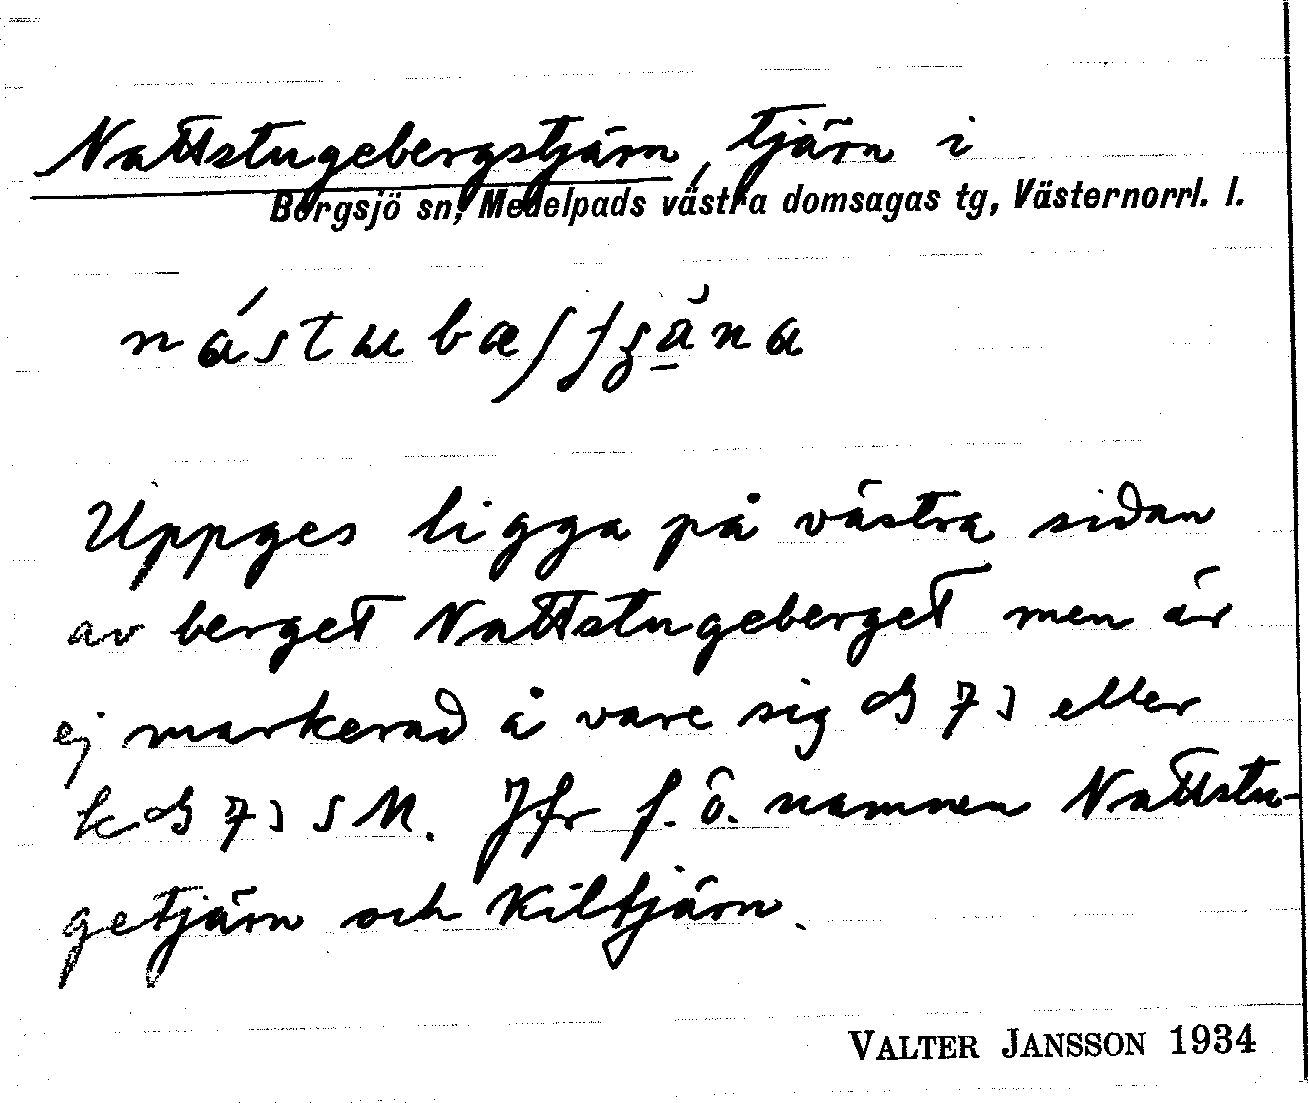 Nattstugebergstjärn, tjärn i
Borgsjö sn, Medelpads västra domsagas tg, Västernorrl. l.
Uppges ligga på västra sidan
av berget Nattstugeberget men är
ej markerad å vare sig GS 73 eller
k GS 73 SM. Jfr f. ö. namnen Nattstu-
getjärn och Kiltjärn.
VALTER JANSSON 1934